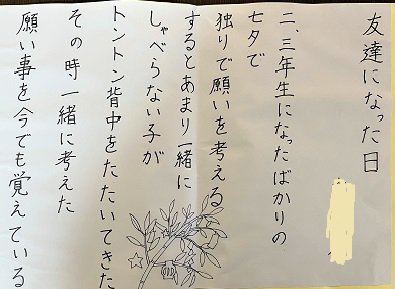 友達になった日
二、三年生になったばかりの
七夕で
独りで願いを考える
するとあまり一緒に
しゃべらない子が
トントン背中をたたいてきた
その時一緒に考えた
願い事を今でも覚えている